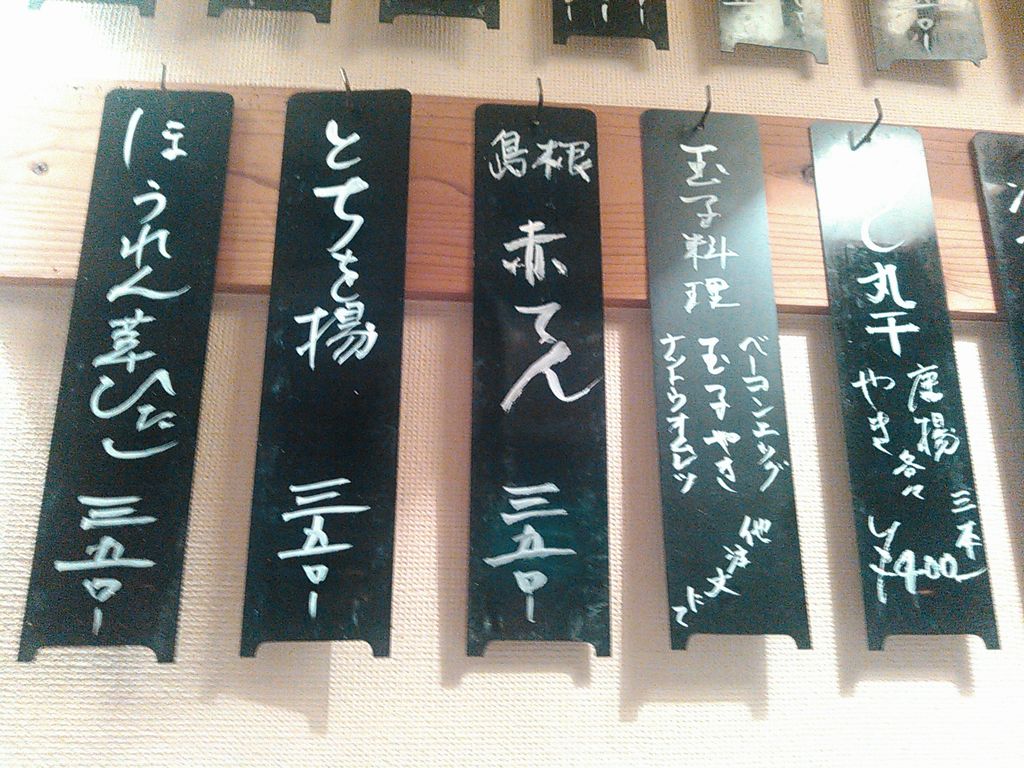 ほうれん草ひたし 三五〇ー
とちを揚 三五〇ー
島根 赤てん 三五〇ー
玉子料理
ベーコンエッグ
玉子やき
ナットウオムレツ
他注文にて
し丸干
唐揚
やき
各々
三本
¥400